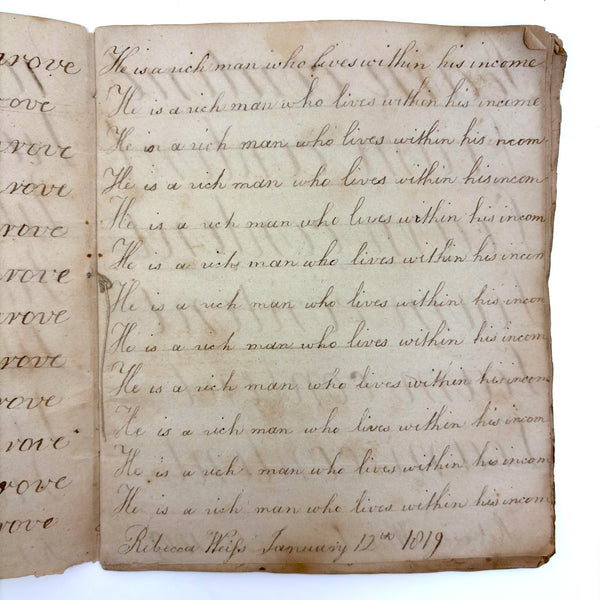 rove
rove
rove
rove
rove
rove
rove
rove
rove
rove
rove
rove
He is a rich man who lives within his income
He is a rich man who lives within his income
He is a rich man who lives within his ncom
He is a rich man who lives within his incom
He is a rich man who lives within his incom
He is a rich man who lives within his incom
He is a rich man who lives within his incom
He is a rich man who lives within his incom
He is a rich man who lives within his incom
He is a rich man who lives within his incom
He is a rich man who lives within his incom
He is a rich man who lives within his incom
Rebecca Weiſs January 12th 1819